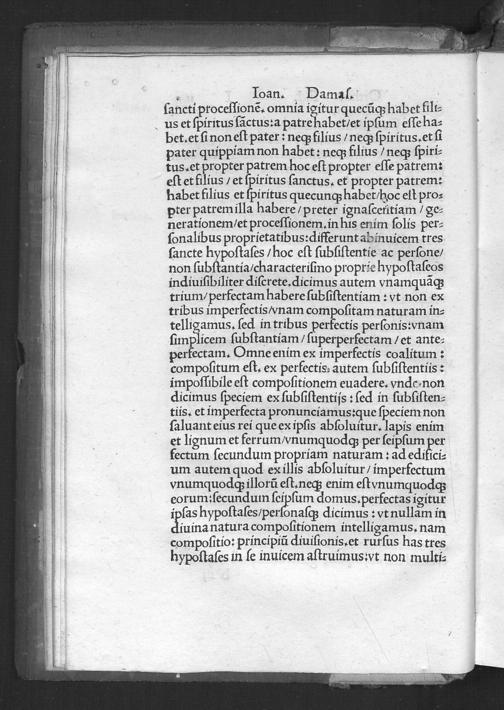 Ioan. Damaſ.
ſancti proceſſionē. omnia igitur quecūqꝫ habet fili⸗
us et ſpiritus ſāctus: a patre habet/et ipſum eſſe ha⸗
bet. et ſi non eſt pater: neqꝫ filius/neqꝫ ſpiritus. et ſi
pater quippiam non habet: neqꝫ filius/neqꝫ ſpiri⸗
tus. et propter patrem hoc eſt propter eſſe patrem:
eſt et filius/et ſpiritus ſanctus. et propter patrem:
habet filius et ſpiritus quecunqꝫ habet/hoc eſt pro⸗
pter patrem illa habere/preter ignaſcentiam/ge⸗
nerationem/et proceſſionem. in his enim ſolis per⸗
ſonalibus proprietatibus: differunt abinuicem tres
ſancte hypoſtaſes/hoc eſt ſubſiſtentie ac perſone/
non ſubſtantia/characteriſmo proprie hypoſtaſeos
indiuiſibiliter diſcrete. dicimus autem vnamquāqꝫ
trium/perfectam habere ſubſiſtentiam: vt non ex
tribus imperfectis/vnam compoſitam naturam in⸗
telligamus. ſed in tribus perfectis perſonis: vnam
ſimplicem ſubſtantiam/ſuperperfectam/et ante⸗
perfectam. Omne enim ex imperfectis coalitum:
compoſitum eſt. ex perfectis autem ſubſiſtentiis:
impoſſibile eſt compoſitionem euadere. vnde non
dicimus ſpeciem ex ſubſiſtentijs: ſed in ſubſiſten⸗
tiis. et imperfecta pronunciamus: que ſpeciem non
ſaluant eius rei que ex ipſis abſoluitur. lapis enim
et lignum et ferrum/vnumquodqꝫ per ſeipſum per
fectum ſecundum propriam naturam: ad edifici⸗
um autem quod ex illis abſoluitur/imperfectum
vnumquodqꝫ illorū eſt. neqꝫ enim eſt vnumquodqꝫ
eorum: ſecundum ſeipſum domus. perfectas igitur
ipſas hypoſtaſes/perſonaſqꝫ dicimus: vt nullam in
diuina natura compoſitionem intelligamus. nam
compoſitio: principiū diuiſionis. et rurſus has tres
hypoſtaſes in ſe inuicem aſtruimus: vt non multi⸗